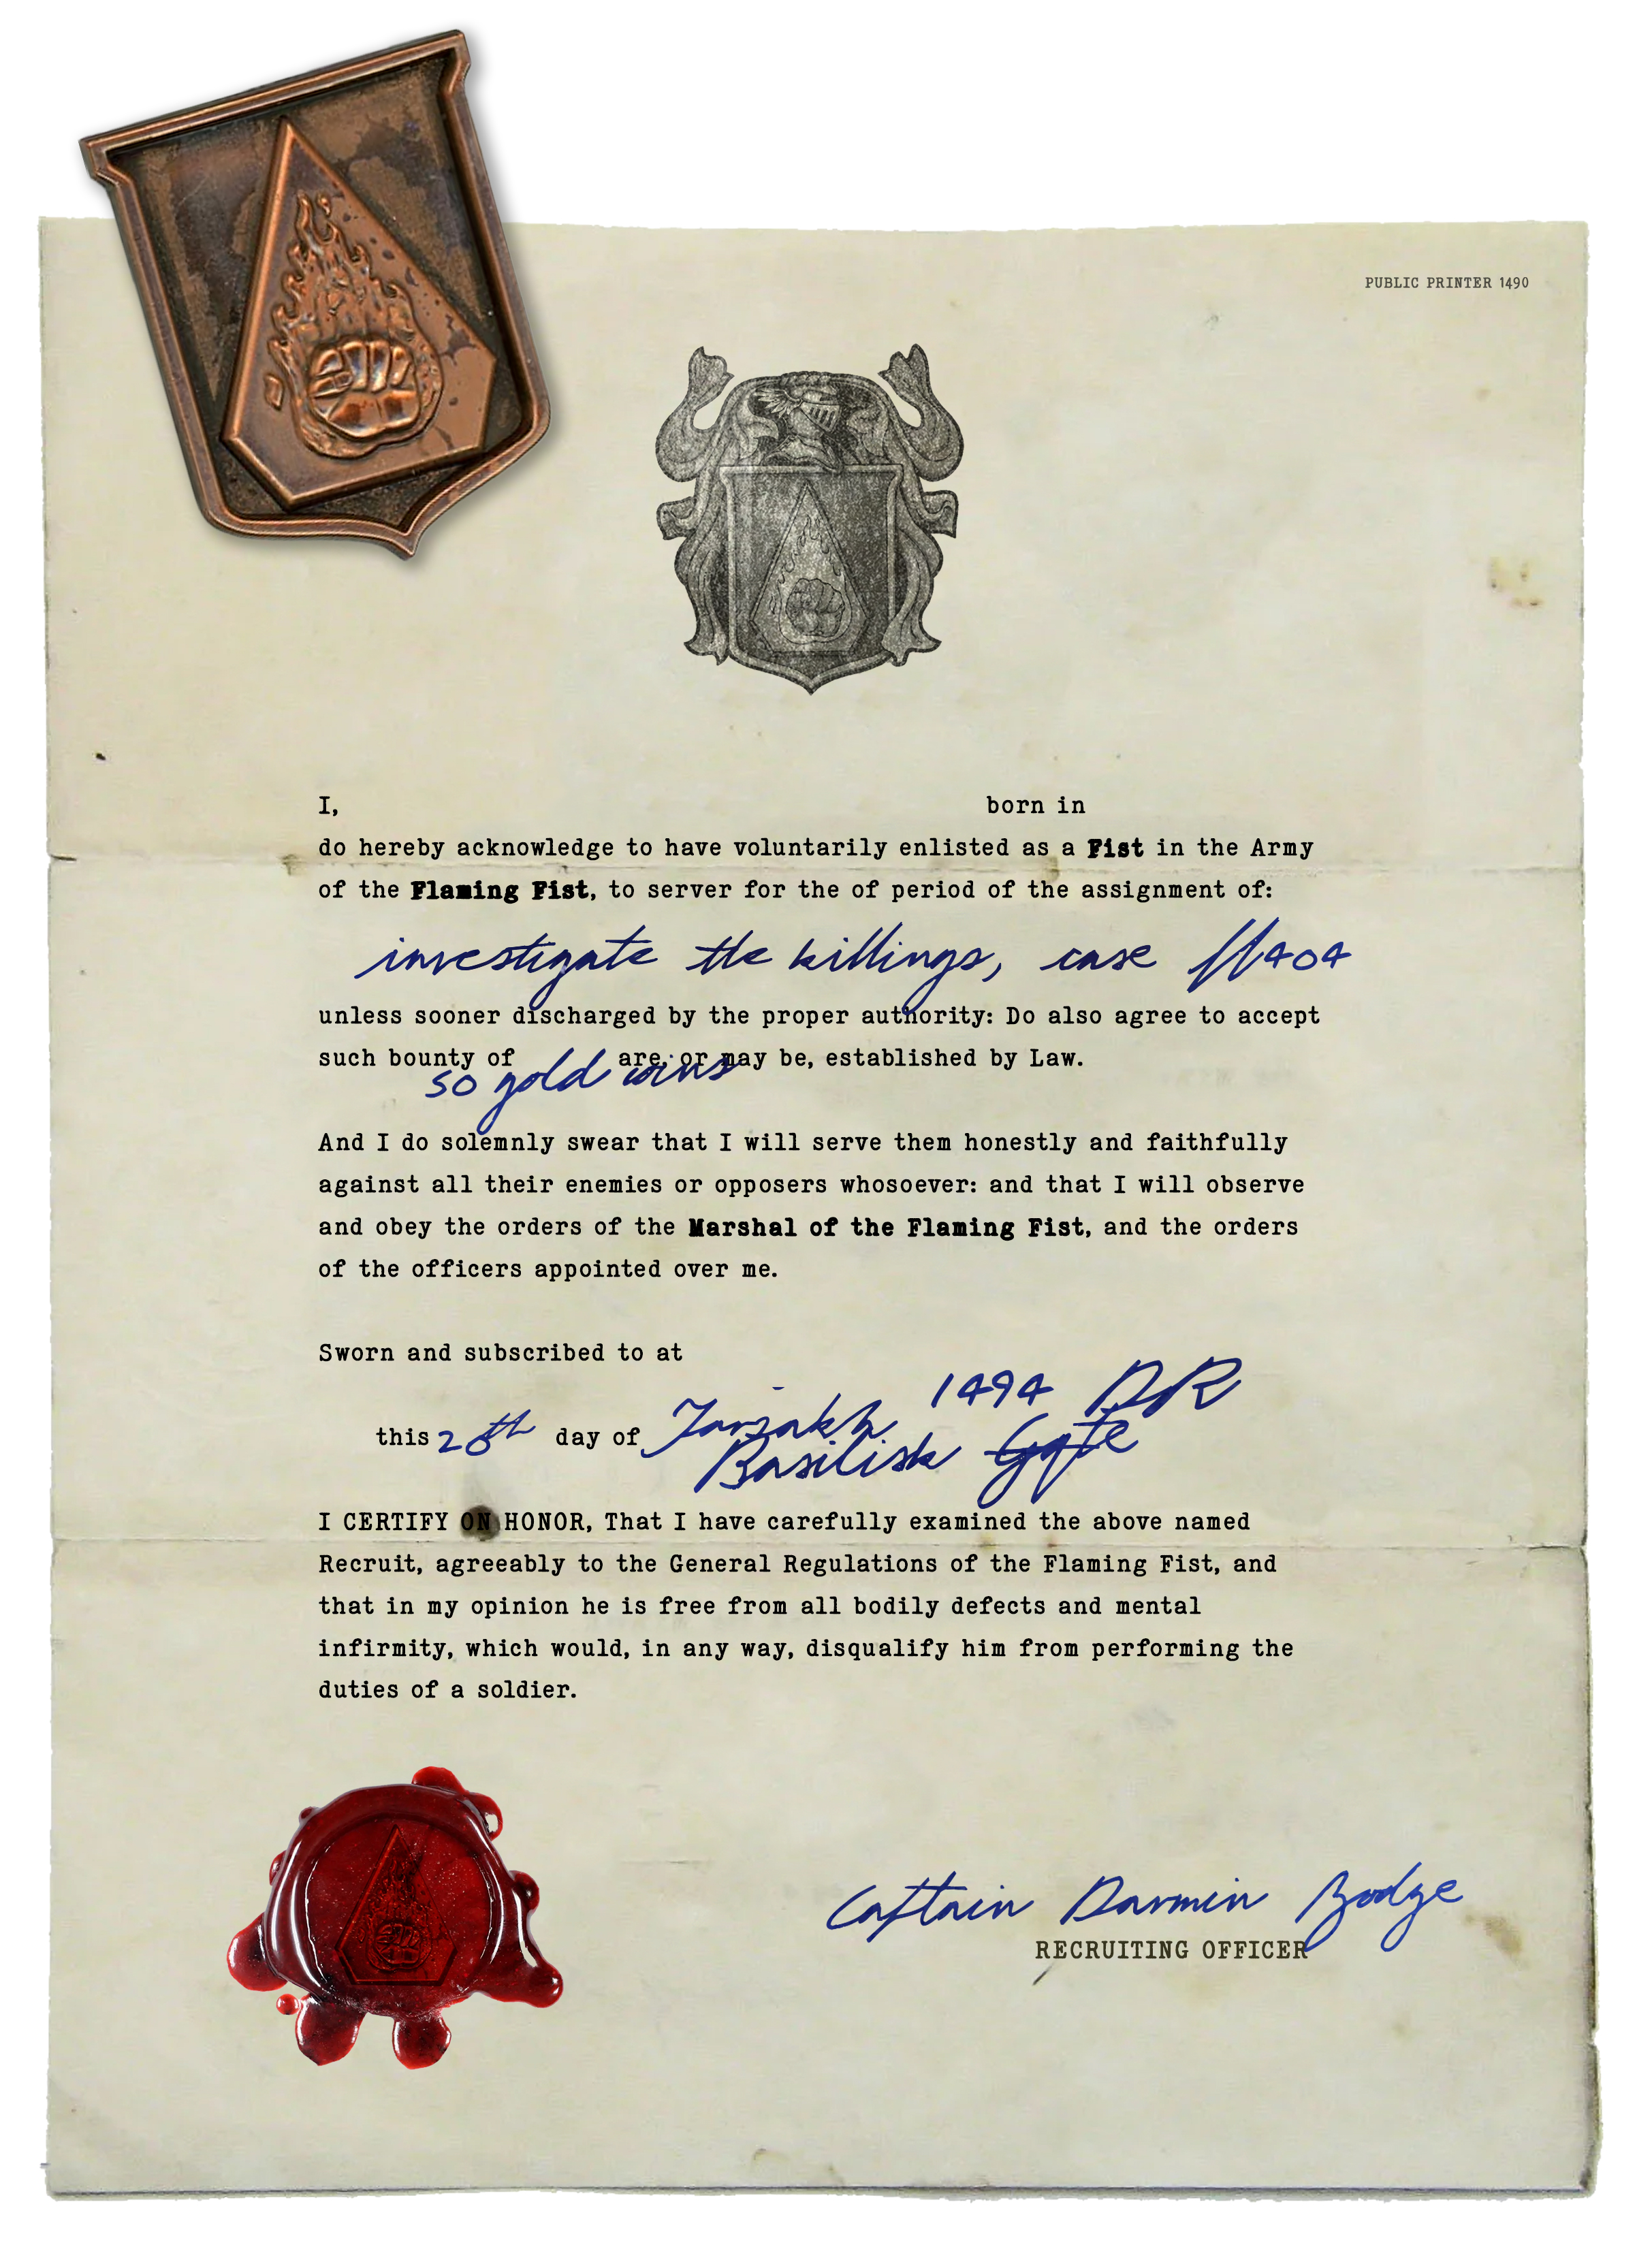 PUBLIC PRINTER 1490
I, born in
do hereby acknowledge to have voluntarily enlisted as a Fist in the Army
of the Flaming Fist, to server for the of period of the assignment of:
investigate the killings, case 404
unless sooner discharged by the proper authority: Do also agree to accept
such bounty of are, or may be, established by Law.
50 gold coins
And I do solemnly swear that I will serve them honestly and faithfully
against all their enemies or opposers whosoever: and that I will observe
and obey the orders of the Marshal of the Flaming Fist, and the orders
of the officers appointed over me.
Sworn and subscribed to at
1494 DR
this 20th day of Tarsakh
Basilisk Gate
I CERTIFY ON HONOR, That I have carefully examined the above named
Recruit, agreeably to the General Regulations of the Flaming Fist, and
that in my opinion he is free from all bodily defects and mental
infirmity, which would, in any way, disqualify him from performing the
duties of a soldier.
Captain Darmin Zodge
RECRUITING OFFICER